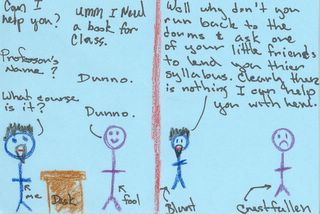 Can I
help you?
Umm I Need
a book for
Class.
Professor's
Name?
Dunno.
What course
is it?
Dunno.
me
Desk
fool
Well why don't you
run back to the
dorms & ask one
of your little friends
to lend you thier
syllabus. Clearly there
is nothing I can help
you with here.
Blunt
Crestfallen